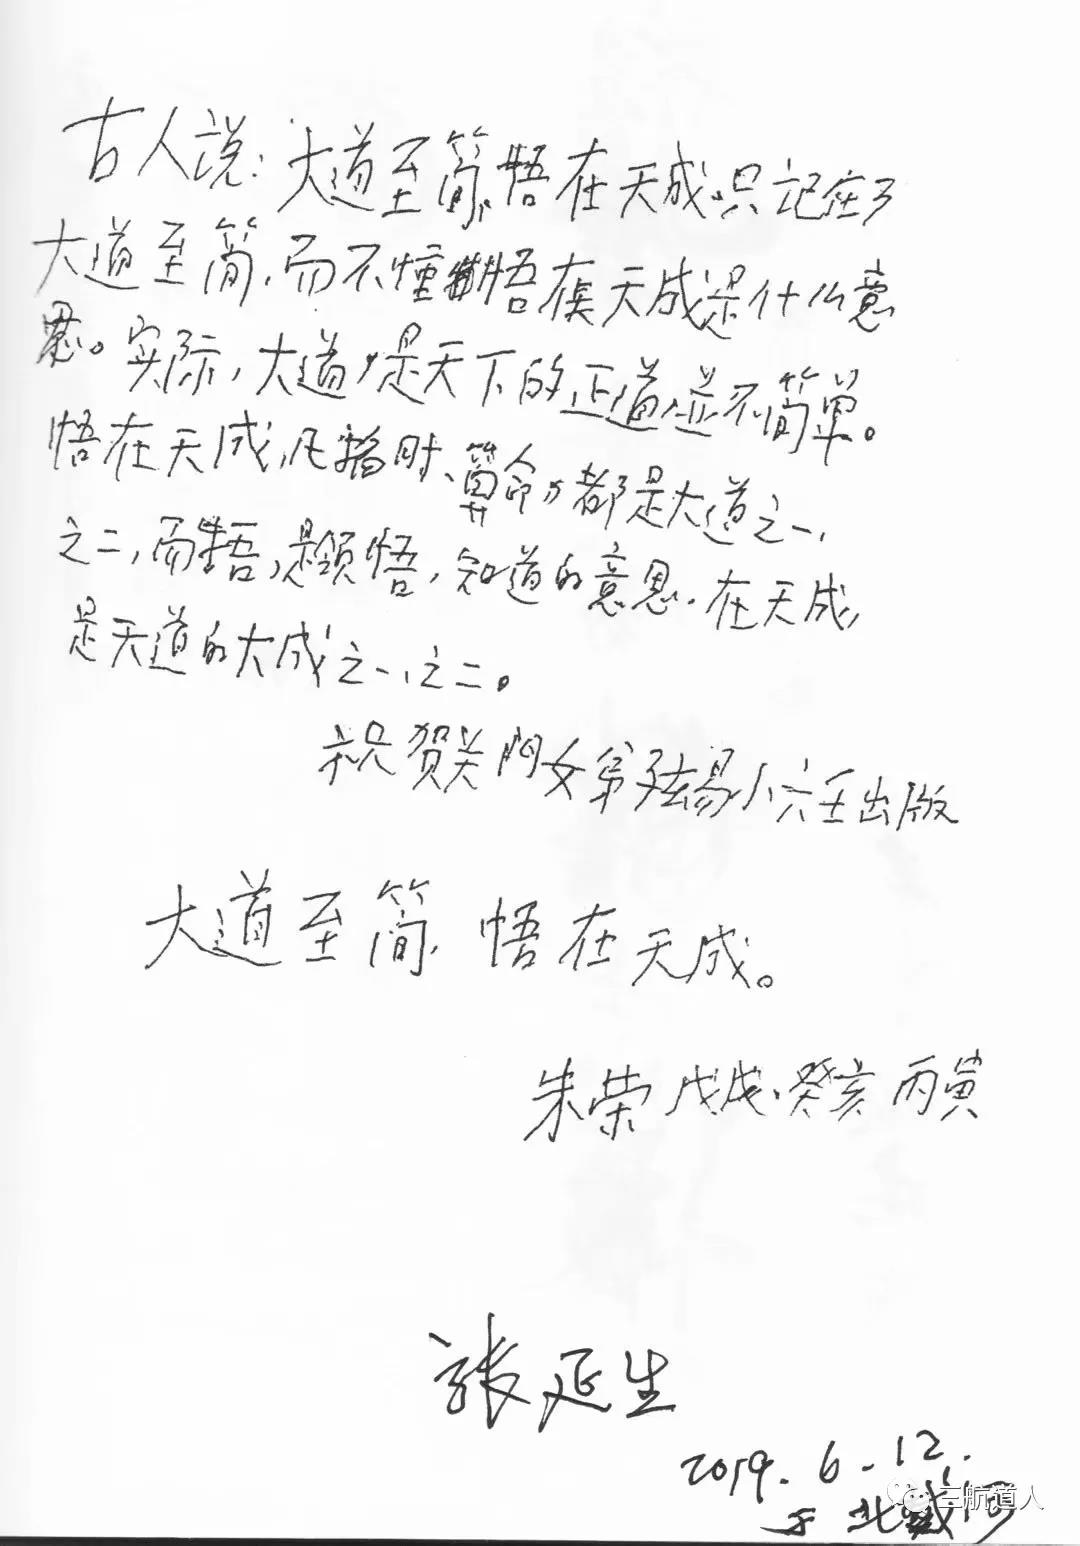 古人说：大道至简，悟在天成。只记在了
大道至简，而不懂悟在天成是什么意
思。实际，大道，是天下的正道，並不简单。
悟在天成，凡 时、算命，都是大道之一、
之二，而悟，是领悟，知道的意思。在天成，
是天道的大成之一、之二。
祝贺关门女弟子弦易小六壬出版
大道至简，悟在天成。
朱荣 戊戌、癸亥 丙寅
张延生
2019.6.12.
于北戴河
三航道人